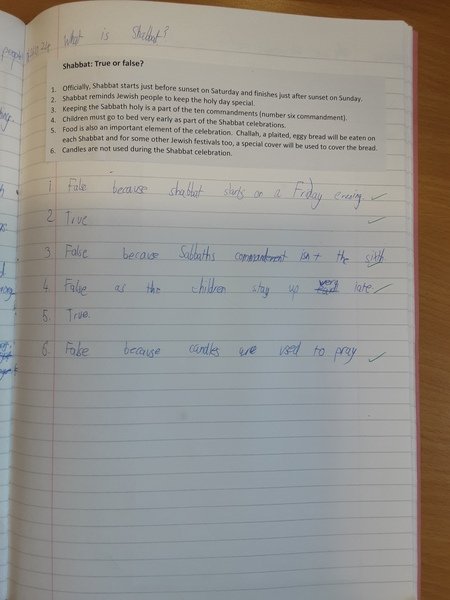 What is Shabbat?
Shabbat: True or false?
1. Officially, Shabbat starts just before sunset on Saturday and finishes just after sunset on Sunday.
2. Shabbat reminds Jewish people to keep the holy day special.
3. Keeping the Sabbath holy is a part of the ten commandments (number six commandment).
4. Children must go to bed very early as part of the Shabbat celebrations.
5. Food is also an important element of the celebration. Challah, a plaited, eggy bread will be eaten on
each Shabbat and for some other Jewish festivals too, a special cover will be used to cover the bread.
6. Candles are not used during the Shabbat celebration.
1 False because shabbat starts on a Friday evening
2 True
3. False because Sabbaths commandment isn't the sixth
4. False as the children stay up very late
5. True.
6. False because candles are used to pray